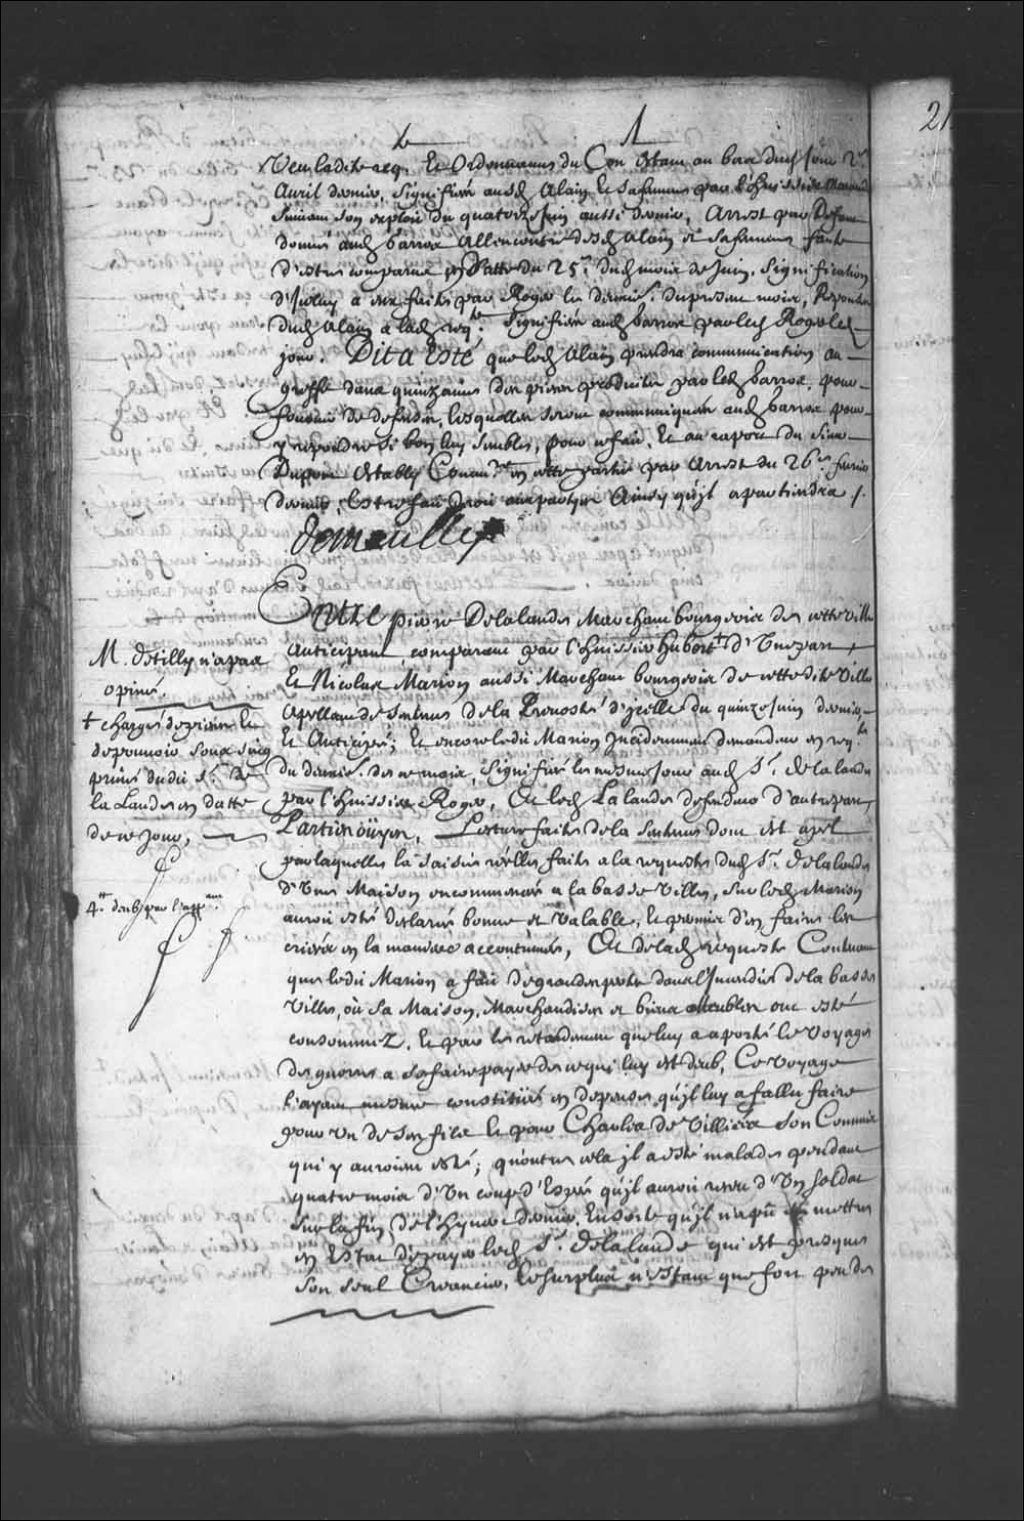 21
Veu ladite req. Et Ordonnance du Con estant au bas dud jour 2e
Auril dernier, signifiée ausd Alain et sa femme par l'huissier
suiuant son exploit du quatorze Juin aussi dernier, Arrest par Defaut
donné aud barros allencontre desd Alain et sa femme faute
d'estre comparus en datte du 25e dud mois de Juin, signification
d'iceluy a eux faite par Roger le dernier du present mois, Reponse
dud Alain a lad reqte signifiée aud barros par led Roger led
jour. Dit a Esté que led Alain prendra communication au
greffe dans quinzaine des pieces produites par led barros, pour
fournir de defenses, lesquelles seront communiquées aud barros pour
y repondre si bon luy semble, pour ce fait, Et au raport du sieur
Dupont Estably Comre en cette partie par Arrest du 26e
dernier, Estre fait droit aux parties Ainsy qu'il apartiendra /.
demeulles
Entre pierre Delalande Marchant bourgeois de cette ville
Anticipant comparant par l'huissier hubert + d'Vne part
Et Nicolas Marion aussi Marchant bourgeois de cette dite Ville
Apellant de sentence de la Preuosté d'jcelle du quinze Juin dernier
Et Anticipé; Et encore ledit Marion Jncidemment demandeur en reqte
du dernier de ce mois, signifiée le mesme jour aud Sr. delalande
par l'huissier Roger, Et led Lalande defendeur d'autre part,
Parties oüyes, Lecture faite de la sentence dont est apel
par laquelle la saisie réelle faite a la requeste dud Sr. delalande
d'Vne Maison encommencée a la basse Ville, sur led Marion
auroit esté declarée bonne et valable, et permis d'en faire les
criées en la maniere accoutumée, Et de lad requeste Contenant
que ledit Marion a fait de grandes pertes dans l'Jncendie de la basse
Ville, où sa Maison, Marchandises et biens meubles ont esté
consommez. Et par le retardement que luy a aporté le voyage
de guerre a se faire payer de ce qui luy est deub, Ce voyage
l'ayant mesme constitüé en depenses qu'il luy a fallu faire
pour vn de ses fils et pour Charles de Villiers son Commis
qui y auroient esté; qu'outre cela jl a esté malade pendant
quatre mois d'Vn coup d'Espée qu'il auroit receu d'Vn soldat
sur la fin de l'hyuer dernier. En sorte qu'il n'a pû se mettre
en Estat de payer led Sr. delalande qui est presque
son seul Creancier, le surplus n'estant que fort peu de
M. de tilly n'a pas
opiné.
+ chargé de pieces et
de pouuoir sous seing
priué dudit Sr. de
la Lande en datte
de ce jour,
4tt deub par l'appant